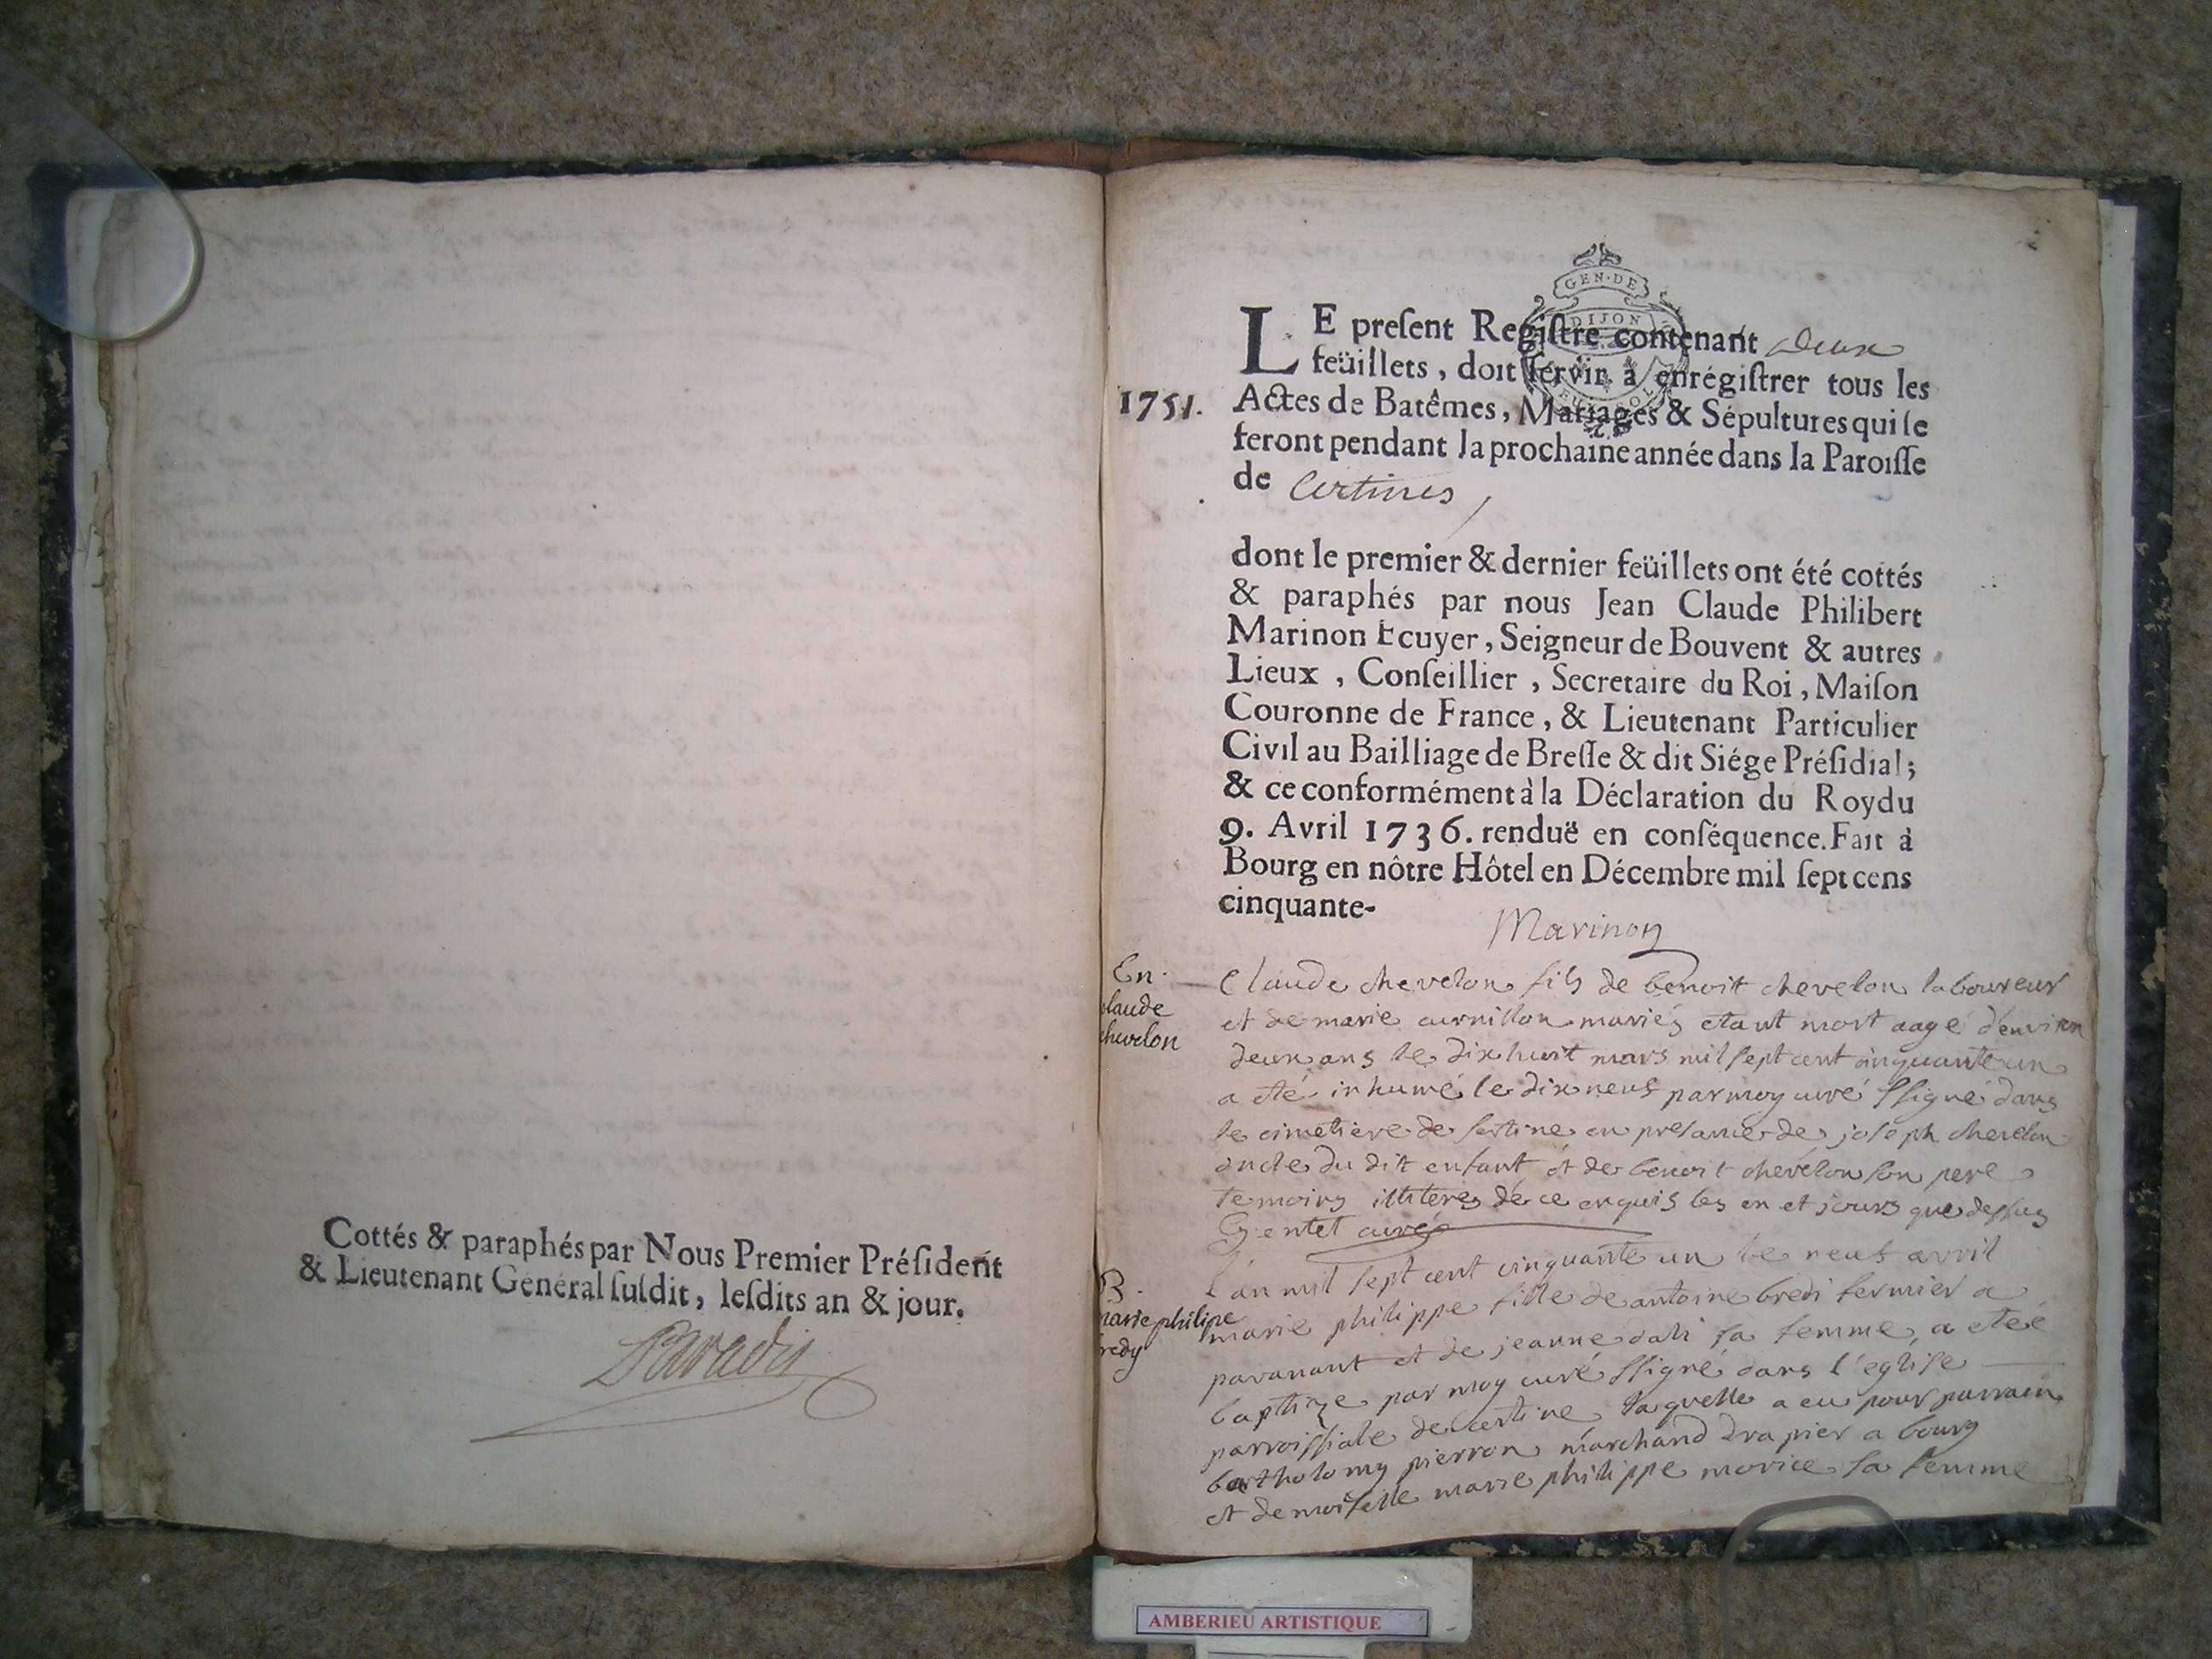 Cottés & paraphés par Nous Premier Préſident
& Lieutenant Général ſuſdit, leſdits an & jour.
Paradis
GEN·DE
DIJON
LE preſent Regiſtre contenant deux
feüillets, doit ſervir à enrégiſtrer tous les
1751.
Actes de Batêmes, Mariages & Sépultures qui ſe
feront pendant la prochaine année dans la Paroiſſe
de Certines
dont le premier & dernier feüillets ont été cottés
& paraphés par nous Jean Claude Philibert
Marinon Ecuyer, Seigneur de Bouvent & autres
Lieux, Conſeillier, Secretaire du Roi, Maiſon
Couronne de France, & Lieutenant Particulier
Civil au Bailliage de Breſſe & dit Siége Préſidial;
& ce conformément à la Déclaration du Roy du
9. Avril 1736. renduë en conſéquence. Fait à
Bourg en nôtre Hôtel en Décembre mil ſept cens
cinquante-
Marinon
En.
claude
chevelon
Claude chevelon fils de benoit chevelon laboureur
et de marie mariés etant mort aagé d'environ
deux ans le dix huit mars mil sept cent cinquante un
a eté inhumé le dix neuf par moy curé ssigné dans
le cimetiere de sertine en presance de joseph chevelon
oncle du dit enfant et de benoit chevelon son pere
temoins illiteres de ce enquis les en et jours que dessus
Gentet curé
B.
marie philipe
bredy
l'an mil sept cent cinquante un le neuf avril
marie philippe fille de antoine bredi fermier a
pavanant et de jeanne dali sa femme a etée
baptize par moy curé ssigné dans l'eglise
parroissiale de certine laquelle a eu pour parrain
bartholomy pierron marchand drapier a bourg
et demoiselle marie philippe morice sa femme
AMBERIEU ARTISTIQUE